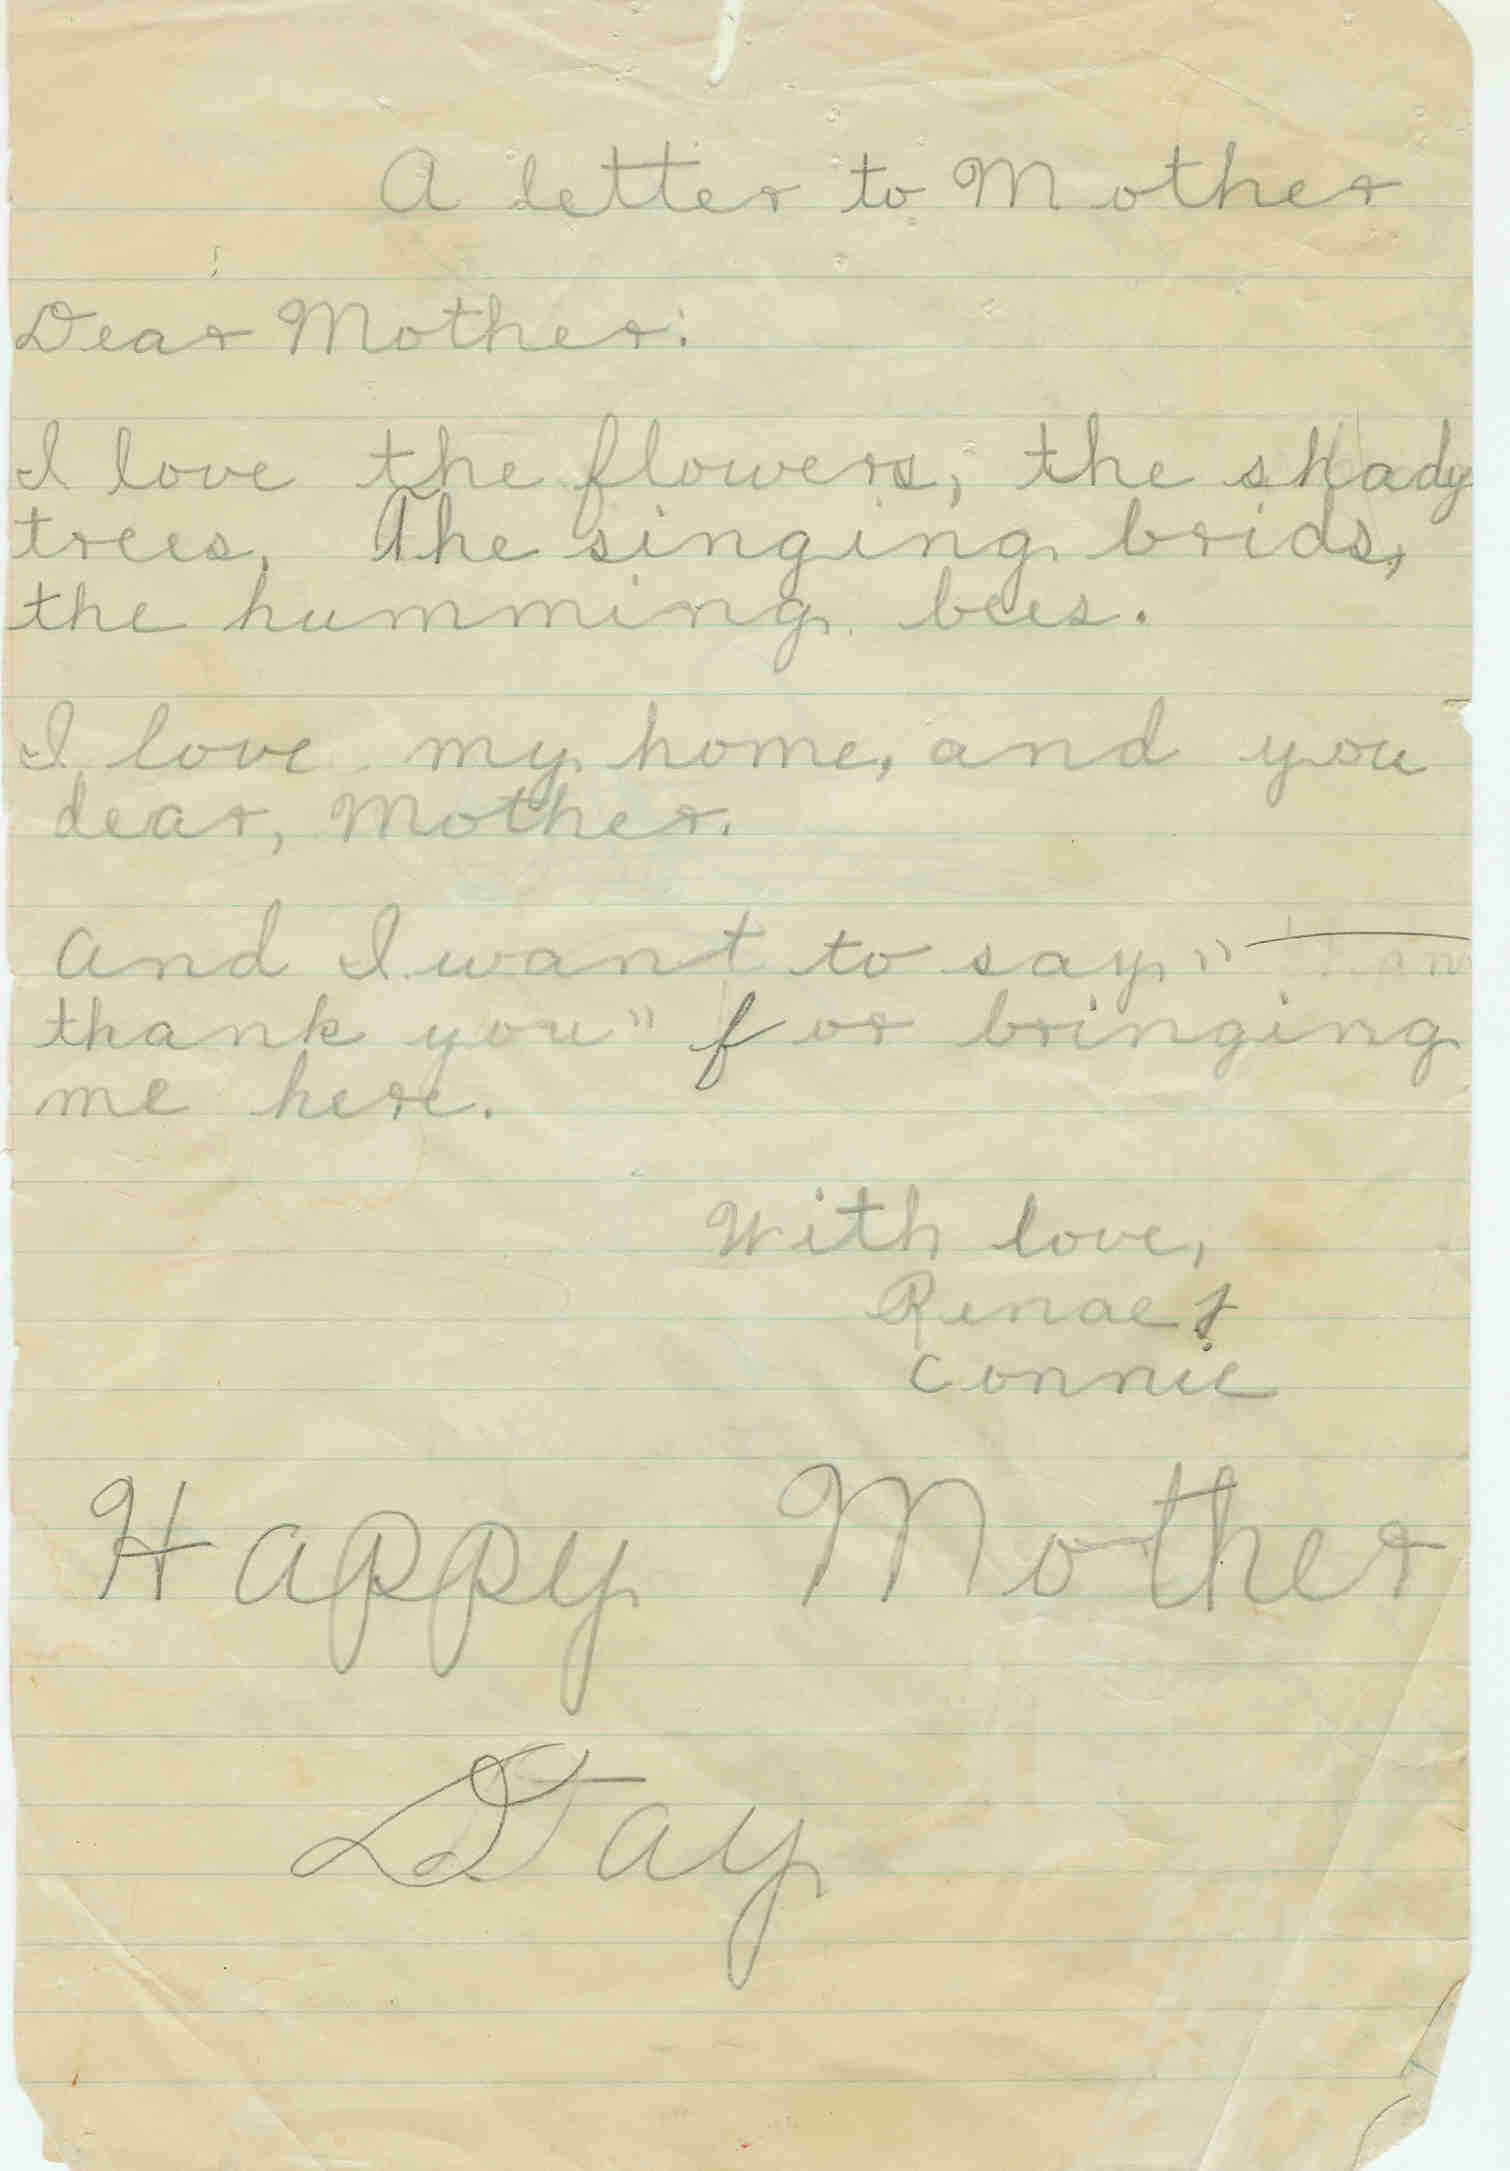 A letter to Mother
Dear Mother:
I love the flowers, the shady
trees, The singing brids,
the humming bees.
I love my home, and you
dear, Mother.
And I want to say "
thank you" for bringing
me here.
With love,
Renae &
Connie
Happy Mother
Day